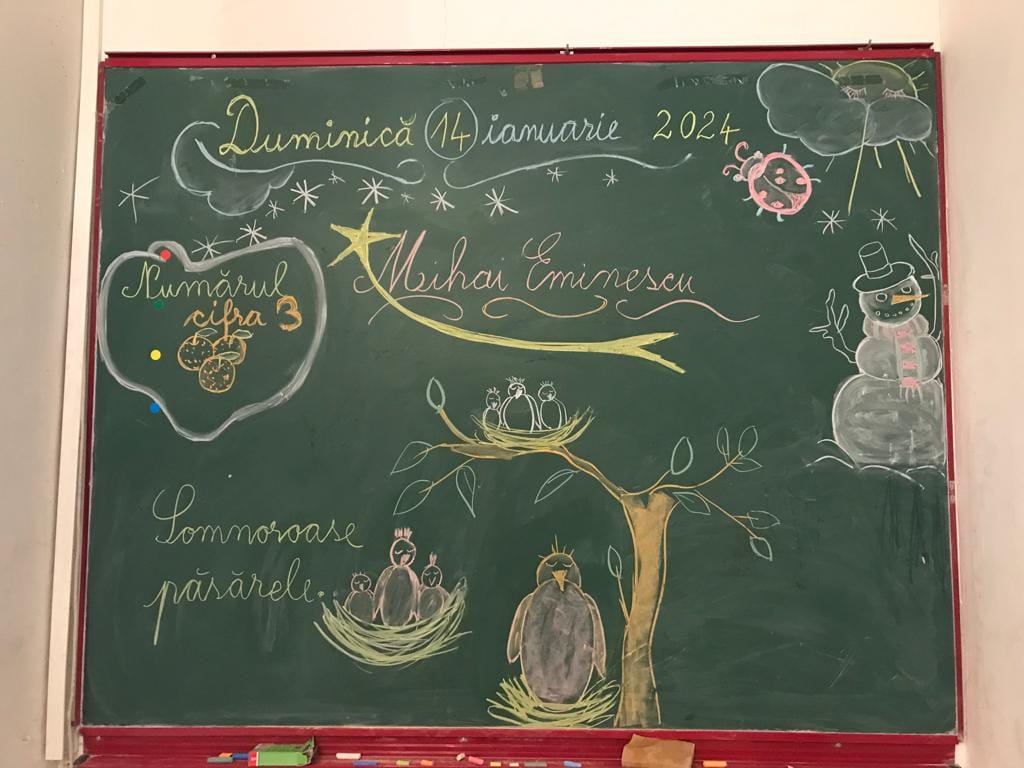 Duminică 14 ianuarie 2024
Mihai Eminescu
Numărul
cifra 3
Somnoroase
păsărele..